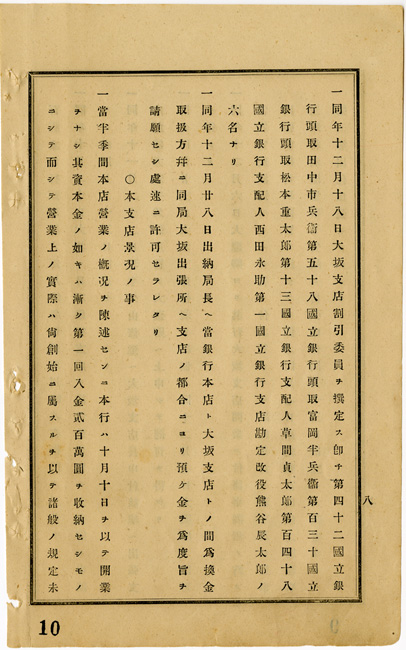 一同年十二月十八日大坂支店割引委員ヲ撰定ス卽チ第四十二國立銀
行頭取田中市兵衞第五十八國立銀行頭取富岡半兵衞第百三十國立
銀行頭取松本重太郞第十三國立銀行支配人草間貞太郞第百四十八
國立銀行支配人西田永助第一國立銀行支店勘定改役熊谷辰太郞ノ
六名ナリ
一同年十二月廿八日出納局長ヘ當銀行本店ト大坂支店トノ間爲換金
取扱方幷ニ同局大坂出張所ヘ支店ノ都合ニヨリ預ケ金ヲ爲度旨ヲ
請願セシ處速ニ許可セラレタリ
〇本支店景況ノ事
一當半季間本店營業ノ槪況ヲ陳述センニ本行ハ十月十日ヲ以テ開業
ヲナシ其資本金ノ如キハ漸タ第一回入金貳百萬圓ヲ收納セシモノ
ニシテ而シテ營業上ノ實際ハ尙創始ニ屬スルヲ以テ諸般ノ規定未
八
10